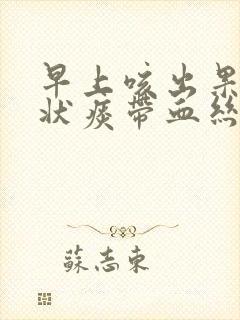 早上咳出果
状痰带血絲
蘇志東